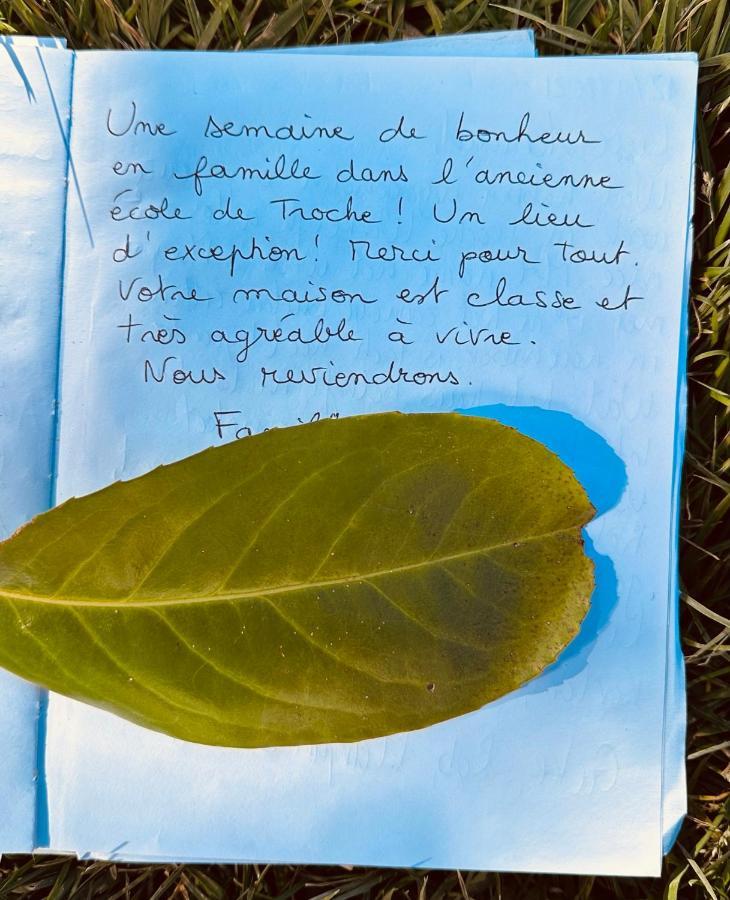 Une semaine de bonheur
en famille dans l'ancienne
école de Troche ! Un lieu
d'exception ! Merci pour tout.
Votre maison est classe et
très agréable à vivre.
Nous reviendrons.